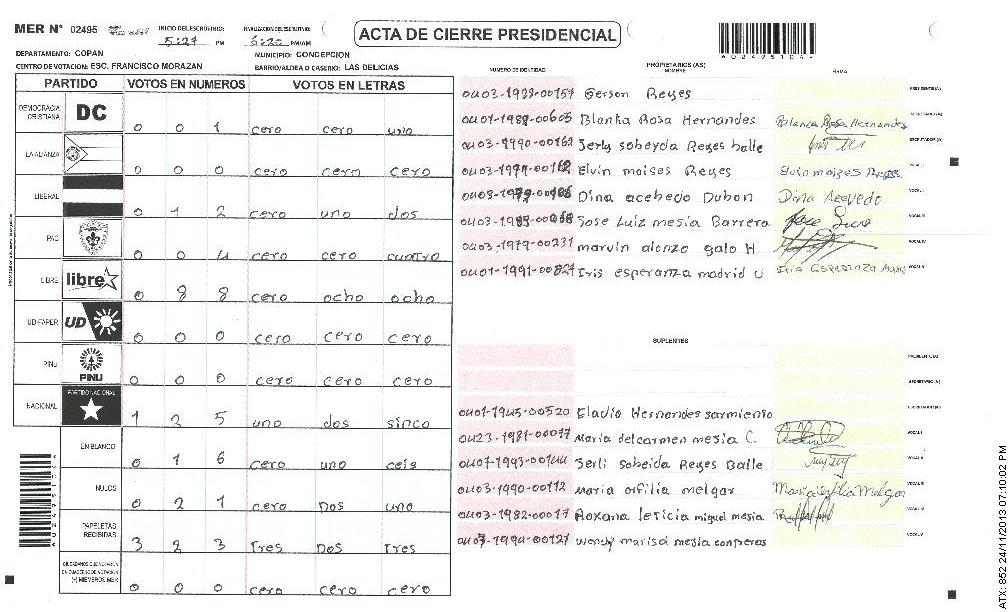 MER N° 02495 INICIO DEL ESCRUTINIO: 5:27 PM FINALIZACION DEL ESCRUTINIO: 6:20 PM/AM
ACTA DE CIERRE PRESIDENCIAL
DEPARTAMENTO: COPAN MUNICIPIO: CONCEPCION
CENTRO DE VOTACION: ESC. FRANCISCO MORAZAN BARRIO/ALDEA O CASERIO: LAS DELICIAS
PARTIDO VOTOS EN NUMEROS VOTOS EN LETRAS
DEMOCRACIA CRISTIANA DC 0 0 1 cero cero uno
LA ALIANZA 0 0 0 cero cero cero
LIBERAL 0 1 2 cero uno dos
PAC 0 0 4 cero cero cuatro
LIBRE libre 0 8 8 cero ocho ocho
UD-FAPER UD 0 0 0 cero cero cero
PINU PINU 0 0 0 cero cero cero
NACIONAL PARTIDO NACIONAL 1 2 5 uno dos sinco
EN BLANCO 0 1 6 cero uno ceis
NULOS 0 2 1 cero Dos uno
PAPELETAS RECIBIDAS 3 2 3 Tres Dos Tres
CIUDADANOS QUE VOTARON EN CUADERNO DE VOTACION (+) MIEMBROS MER 0 0 0 cero cero cero
NUMERO DE IDENTIDAD PROPIETARIOS (AS) NOMBRE FIRMA
0403-1939-00157 Gerson Reyes PRESIDENTE(A)
0401-1989-00605 Blanka Rosa Hernandes Blanca Rosa Hernandes SECRETARIO(A)
0403-1990-00162 Serly sobeyda Reyes balle ESCRUTADOR(A)
0403-1977-00112 Elvin moises Reyes Elvin moizes Reyes VOCAL I
Dina acebedo Dubon Dina Acevedo VOCAL II
0403-1989-00068 Jose Luiz mesia Barrera VOCAL III
0403-1979-00231 marvin alonzo galo H VOCAL IV
0401-1991-00827 Iris esperanza madrid U Iris Esperanza VOCAL V
SUPLENTES
PRESIDENTE(A)
SECRETARIO(A)
0401-1945-00520 Eladio Hernandes sarmiento ESCRUTADOR(A)
0423-1981-00017 Maria delcarmen mesia C. VOCAL I
0407-1993-00144 Serli sobeida Reyes Balle VOCAL II
0403-1990-00112 Maria orfilia melgar Maria orfilia Melgar VOCAL III
0403-1982-00017 Roxana leticia miguel mesia VOCAL IV
0407-1990-00127 Wendy marisol mesia contreras VOCAL V
ATX: 852 24/11/2013 07:10:02 PM